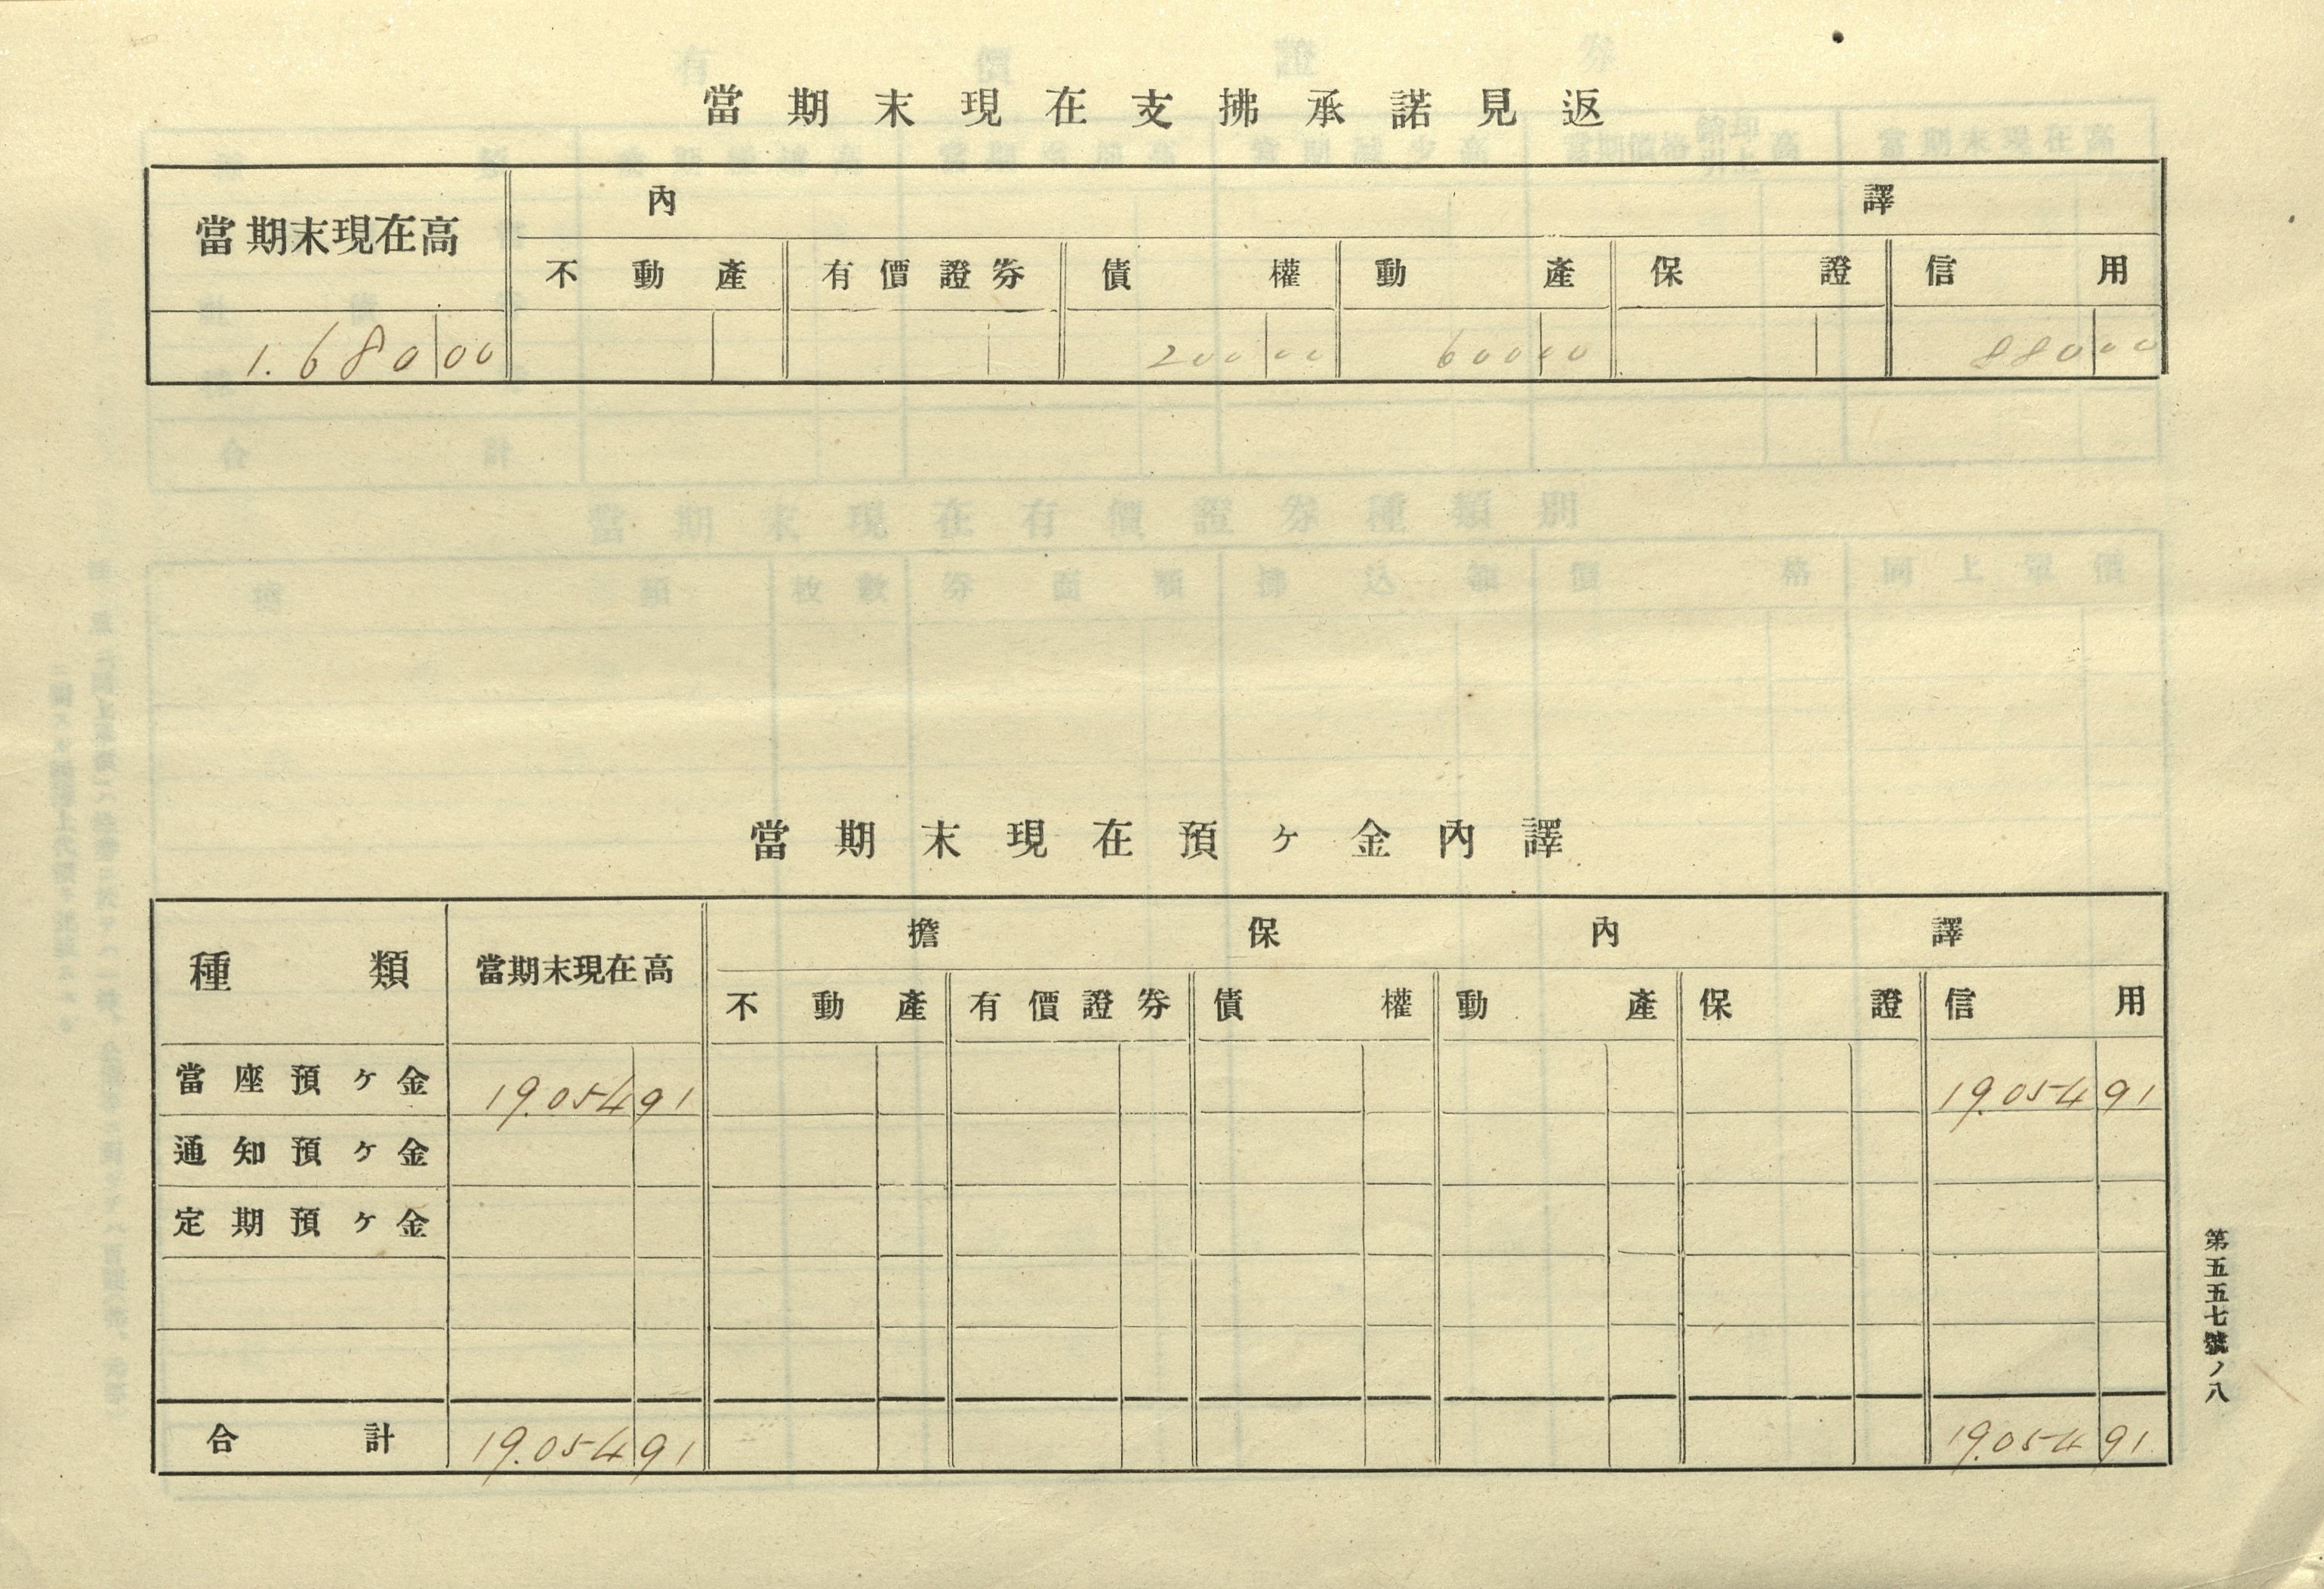 當期末現在支拂承諾見返
當期末現在高 內譯
不動產 有價證券 債權 動產 保證 信用
1.680 00 200 00 600 00 880 00
當期末現在預ヶ金內譯
種類 當期末現在高 擔保內譯
不動產 有價證券 債權 動產 保證 信用
當座預ヶ金 19.054 91 19.054 91
通知預ヶ金
定期預ヶ金
合計 19.054 91 19.054 91
第五五七號ノ八